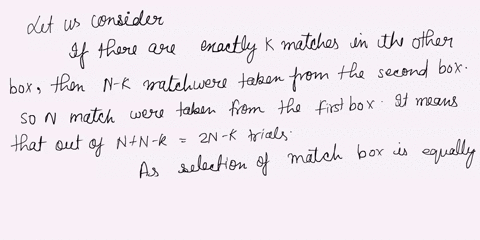 Let us consider
If there are exactly K matches in the other
box, then N-K matchwere taken from the second box.
So N match were taken from the first box. It means
that out of N+N-K = 2N-K trials.
As selection of match box is equally